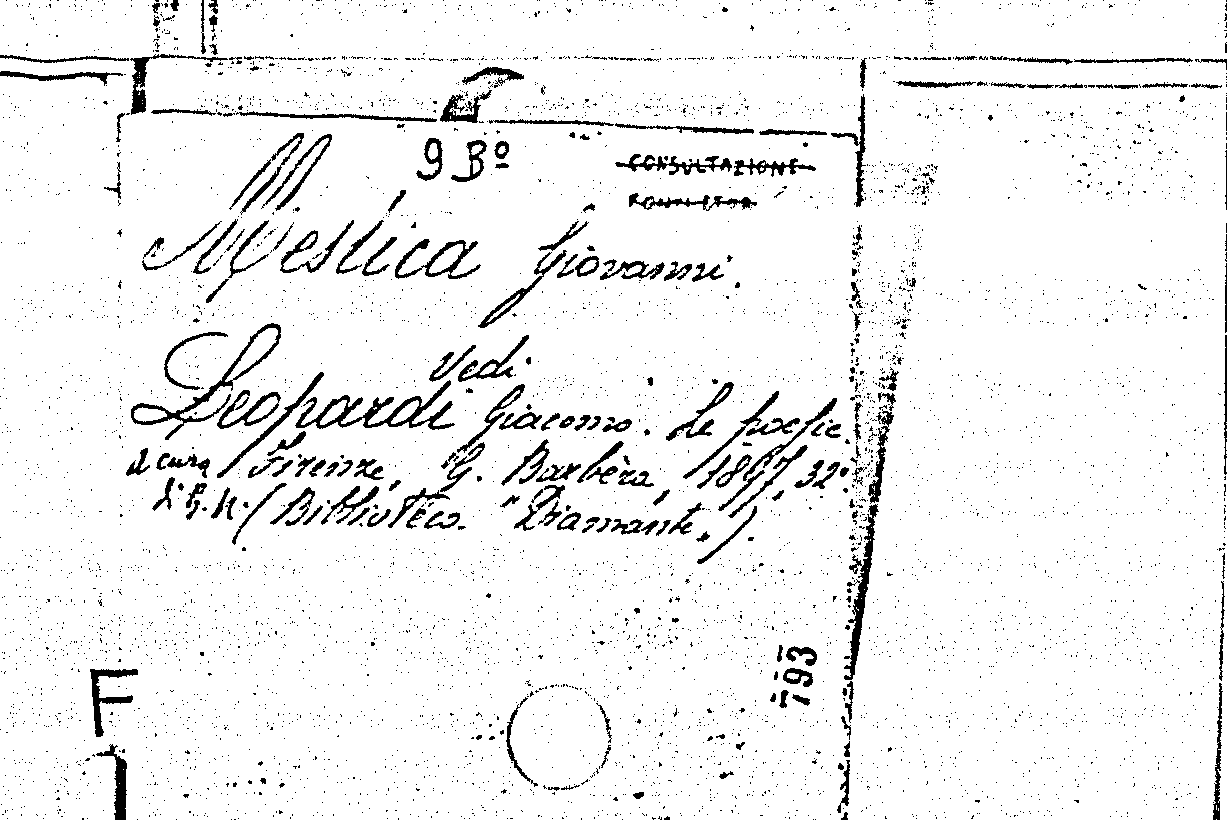 9 Bº
CONSULTAZIONE
Mestica Giovanni.
Vedi
Leopardi Giacomo. Le poesie.
a cura Firenze, G. Barbèra, 1897, 32º.
di G. M. (Biblioteca "Diamante„).
793
F